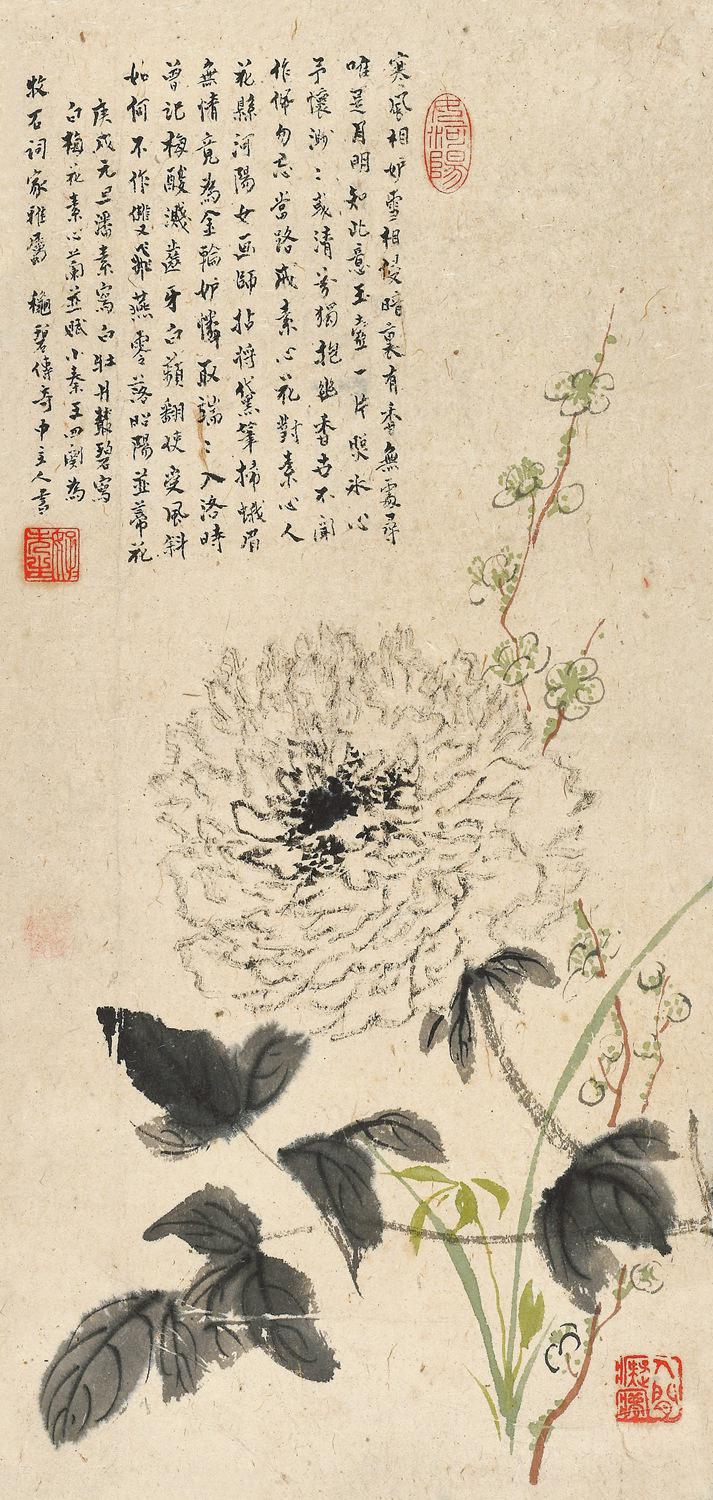 寒風相妒雪相侵暗裏有香無處尋
唯是月明知此意玉壺一片照冰心
予懷渺〻或清芬獨抱幽香世不聞
作佩勿忘當路戒素心花對素心人
花縣河陽女画師拈將黛筆掃蛾眉
無情竟為金輪妒憐取端〻入洛時
曾記梅酸濺齒牙白蘋翻使受風斜
如何不作雙飛燕零落昭陽並蒂花
庚戌元旦潘素寫白牡丹叢碧寫
白梅花素心蘭並賦小秦王四闋為
牧石詞家雅屬 叢碧傳奇中主人書